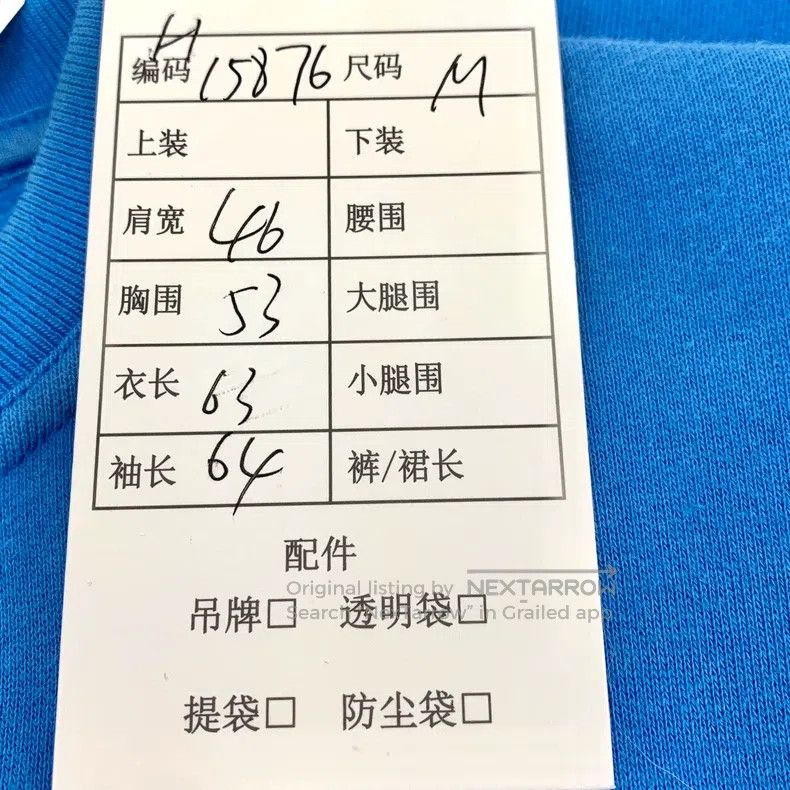 H
编码 15876 尺码 M
上装 下装
肩宽 46 腰围
胸围 53 大腿围
衣长 63 小腿围
袖长 64 裤/裙长
配件
Original listing by NEXTARROW
吊牌□ 透明袋□
Search "Nextarrow" in Grailed app
提袋□ 防尘袋□